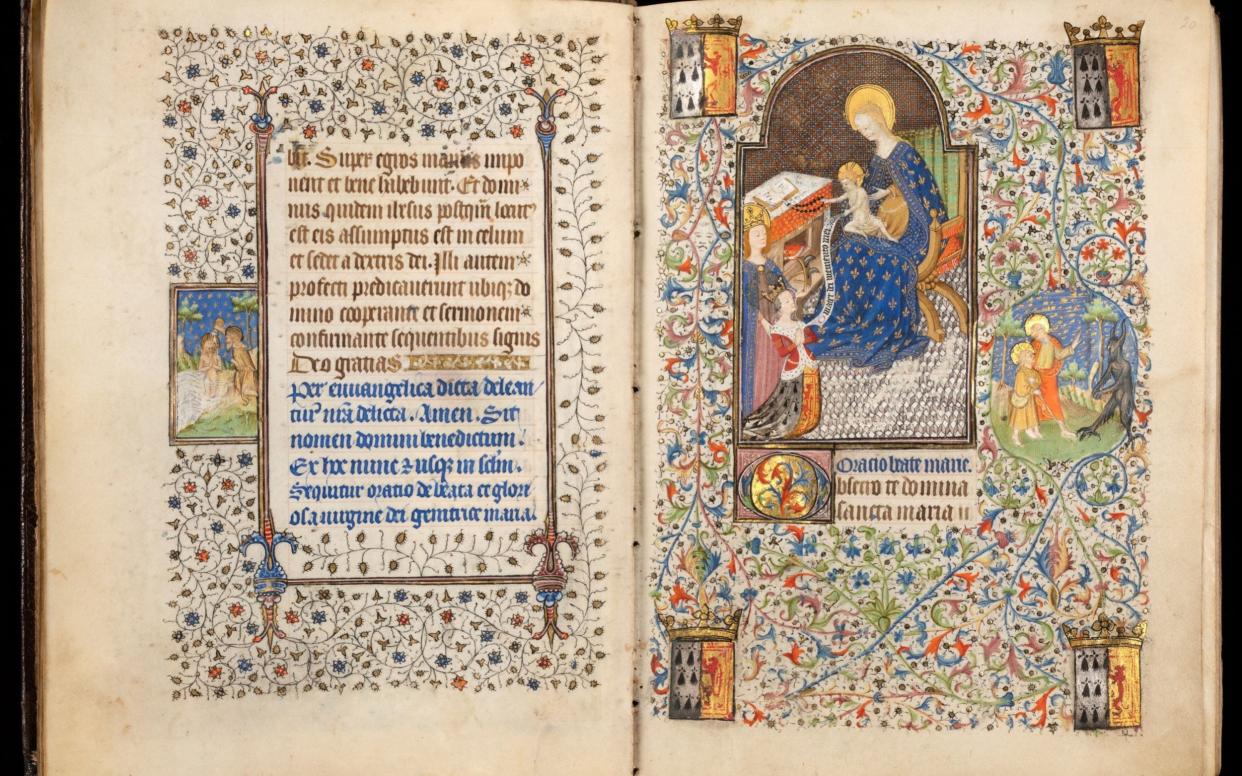 bit. Super egros manus impo
nent et bene habebunt. Et domi
nus quidem ihesus postq̃m locut⁹
est eis assumptus est in celum
et sedet a dextris dei. Illi autem
profecti predicauerunt ubiqꝫ do
mino cooperante et sermonem
confirmante sequentibus signis
Deo gratias
Per euuangelica dicta delean
tur nr̃a delicta. Amen. Sit
nomen domini benedictum.
Ex hoc nunc ⁊ usqꝫ in sclm̃.
Sequitur oratio de beata et glori
osa uirgine dei genitrice maria.
20
mater dei memento mei
Oratio beate marie.
Obsecro te domina
sancta maria